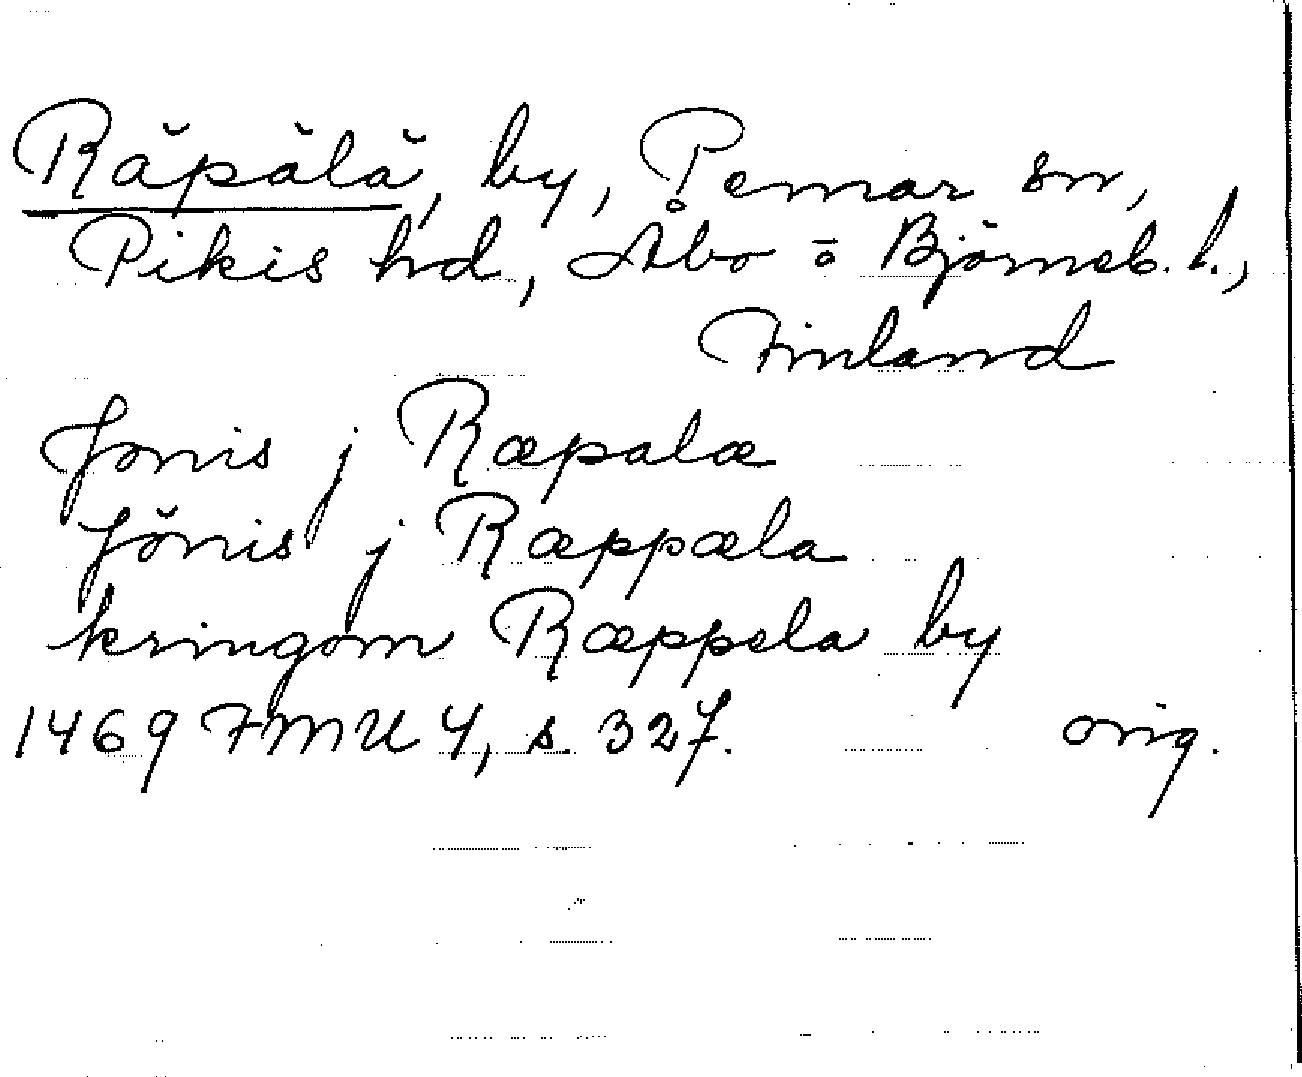 Räpälä, by, Pemar sn,
Pikis hd, Åbo o Björneb. l.,
Finland
Jonis j Ræpalæ
Jönis j Ræppæla
kringom Ræppela by
1469 FMU 4, s. 327. orig.